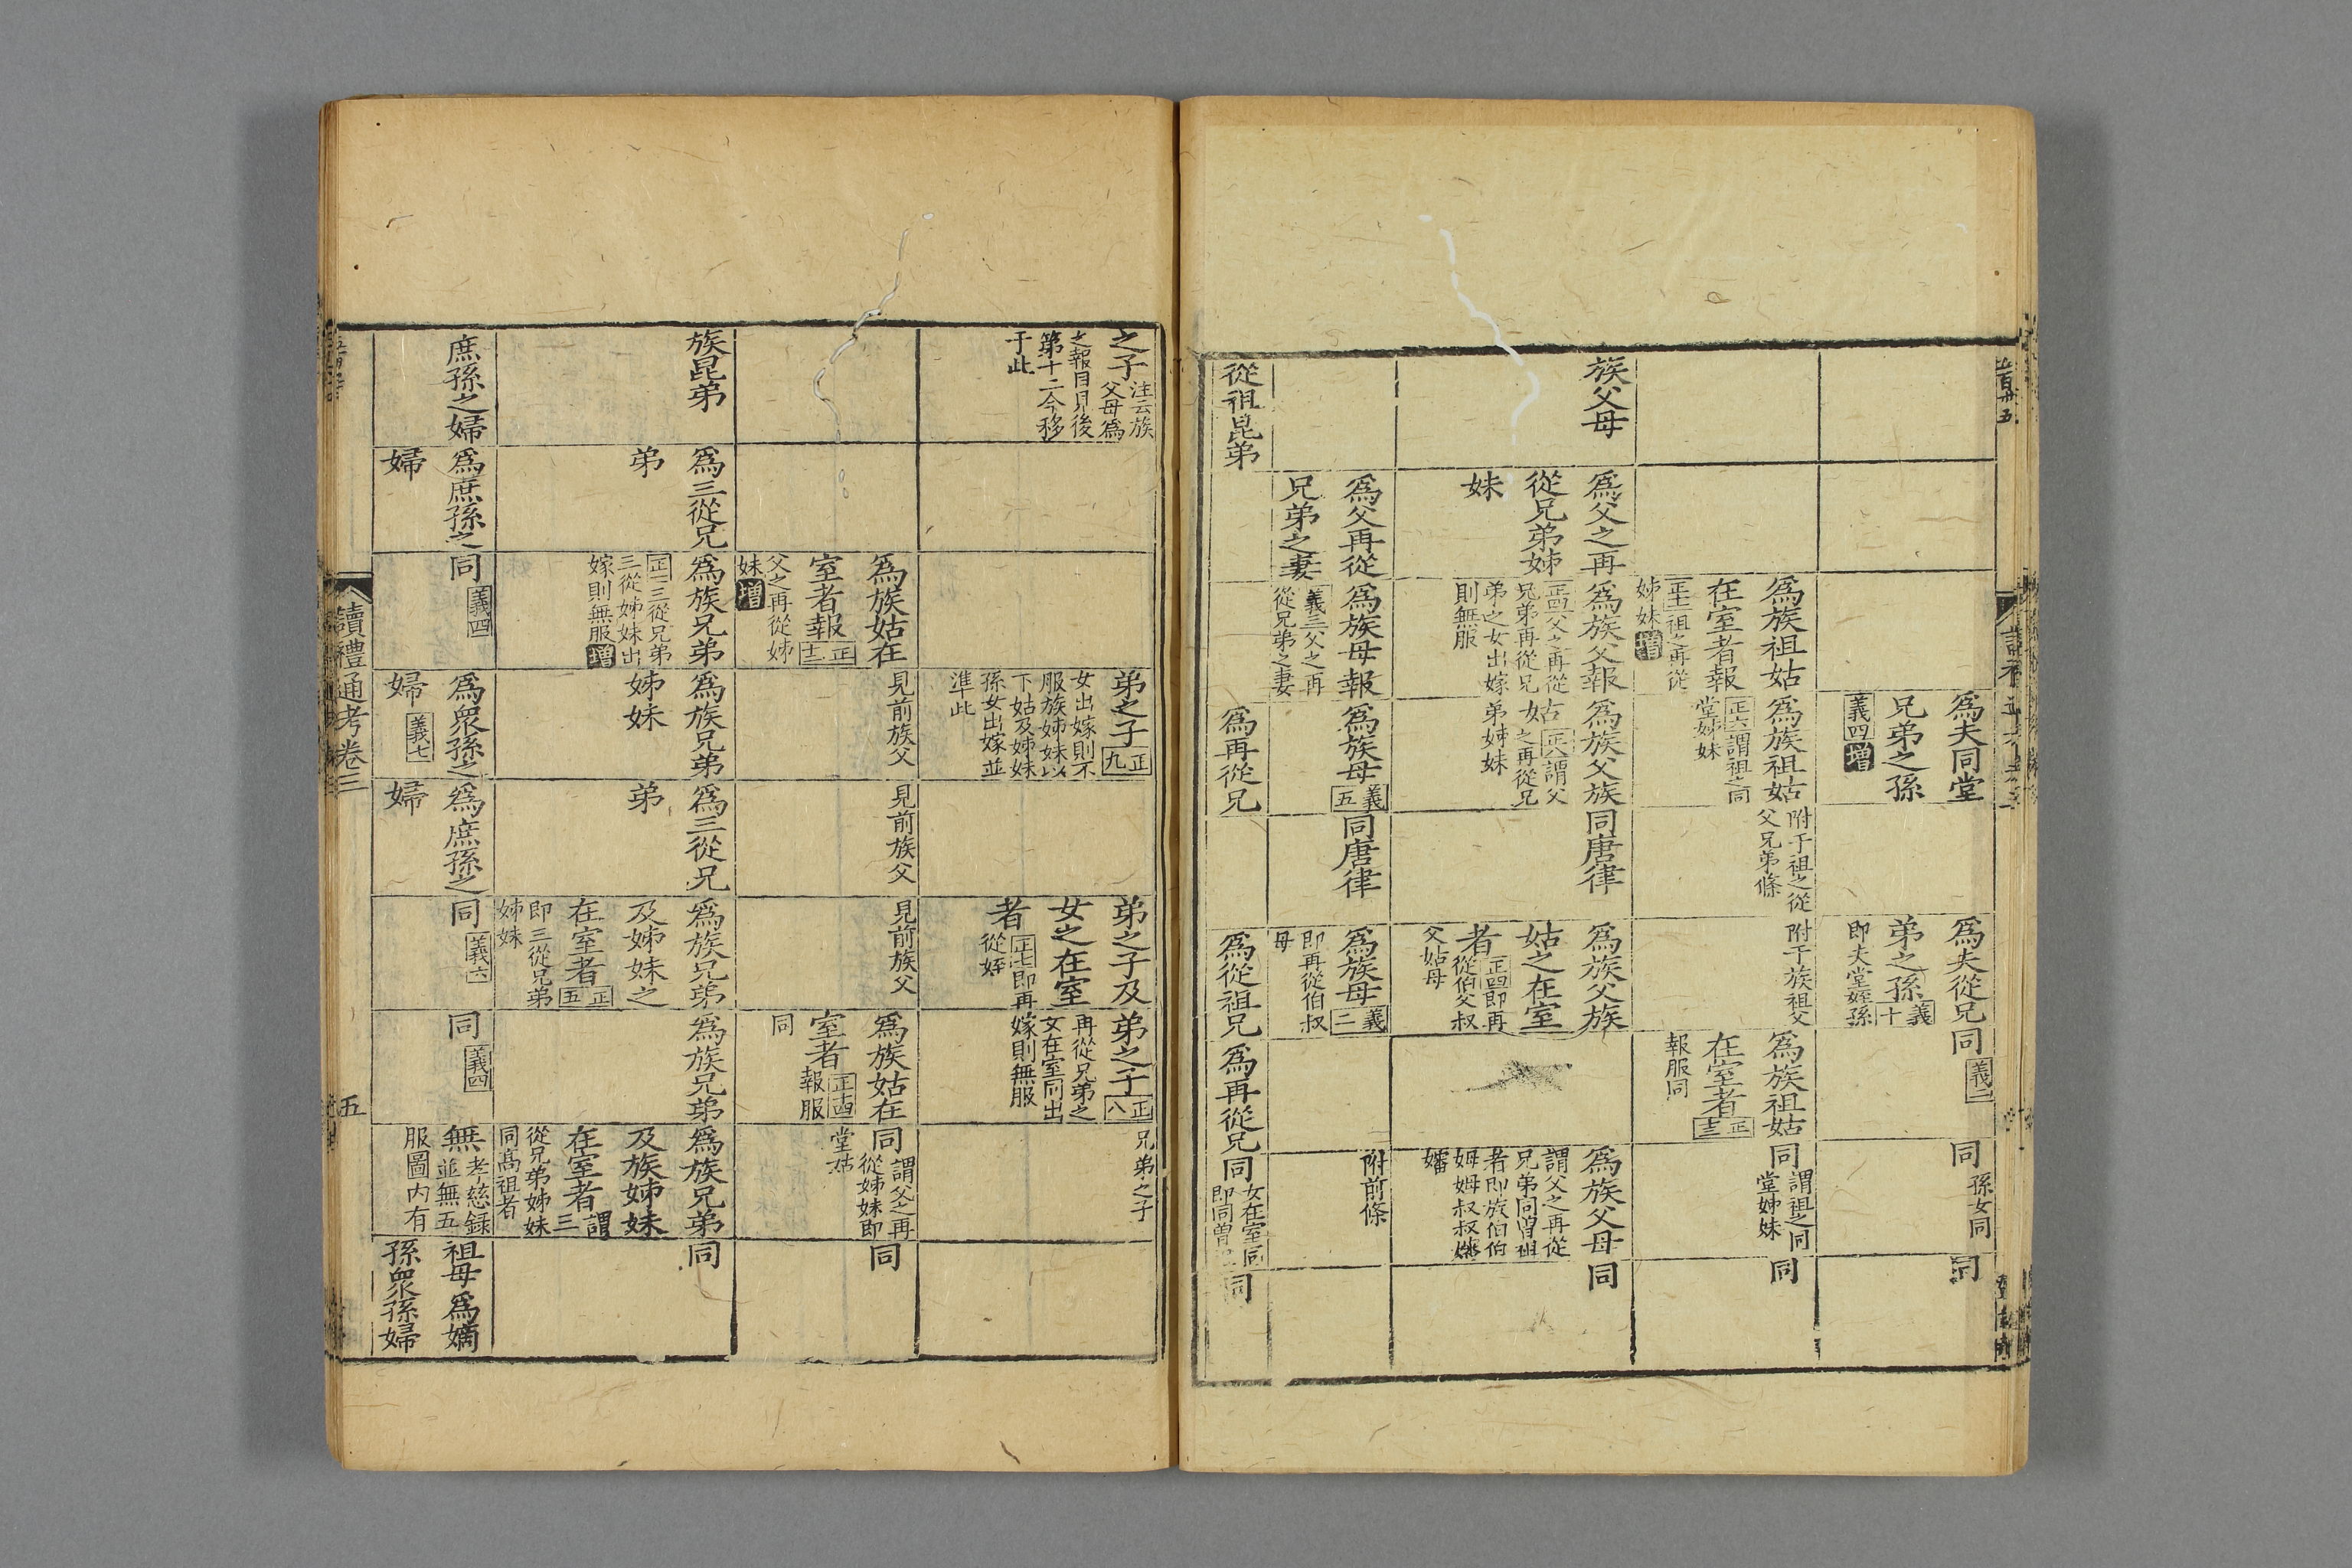 為夫同堂
兄弟之孫
義四增
為夫從兄
弟之孫義十
即夫堂姪孫
同義二
同孫女同
同
為族祖姑
在室者報
正十一祖之再從
姊妹增
為族祖姑
正六謂祖之同
堂姊妹
附于祖之從
父兄弟條
附于族祖父
為族祖姑
在室者正十三
報服同
同謂祖之同
堂姊妹
同
族父母
為父之再
從兄弟姊
妹
為族父報
正四父之再從
兄弟再從兄
弟之女出嫁
則無服
為族父族
姑正八謂父
之再從兄
弟姊妹
同唐律
為族父族
姑之在室
者正四即再
從伯父叔
父姑母
為族父母
謂父之再從
兄弟同曽祖
者即族伯伯
姆姆叔叔嬸
嬸
同
為父再從
兄弟之妻
為族母報
義三父之再
從兄弟之妻
為族母義五
同唐律
為族母義二
即再從伯叔
母
附前條
從祖昆弟
為再從兄
為從祖兄
為再從兄
同女在室同
即同曽
同
之子注云族
父母為
之報目見後
第十二今移
于此
弟之子正九
女出嫁則不
服族姊妹以
下姑及姊妹
孫女出嫁並
準此
弟之子及
女之在室
者正七即再
從姪
弟之子正八
再從兄弟之
女在室同出
嫁則無服
兄弟之子
為族姑在
室者報正十二
父之再從姊
妹增
見前族父
見前族父
見前族父
為族姑在
室者正十四報服
同
同謂父之再
從姊妹即
堂姑
同
族昆弟
為三從兄
弟
為族兄弟
正三三從兄弟
三從姊妹出
嫁則無服增
為族兄弟
姊妹
為三從兄
弟
為族兄弟
及姊妹之
在室者正五
即三從兄弟
姊妹
為族兄弟
為族兄弟
及族姊妹
在室者謂三
從兄弟姊妹
同高祖者
同
庶孫之婦
為庶孫之
婦
同義四
為衆孫之
婦義七
為庶孫之
婦
同義六
同義四
無孝慈録
並無五
服圖内有
祖母為嫡
孫衆孫婦
讀禮通考卷三
五